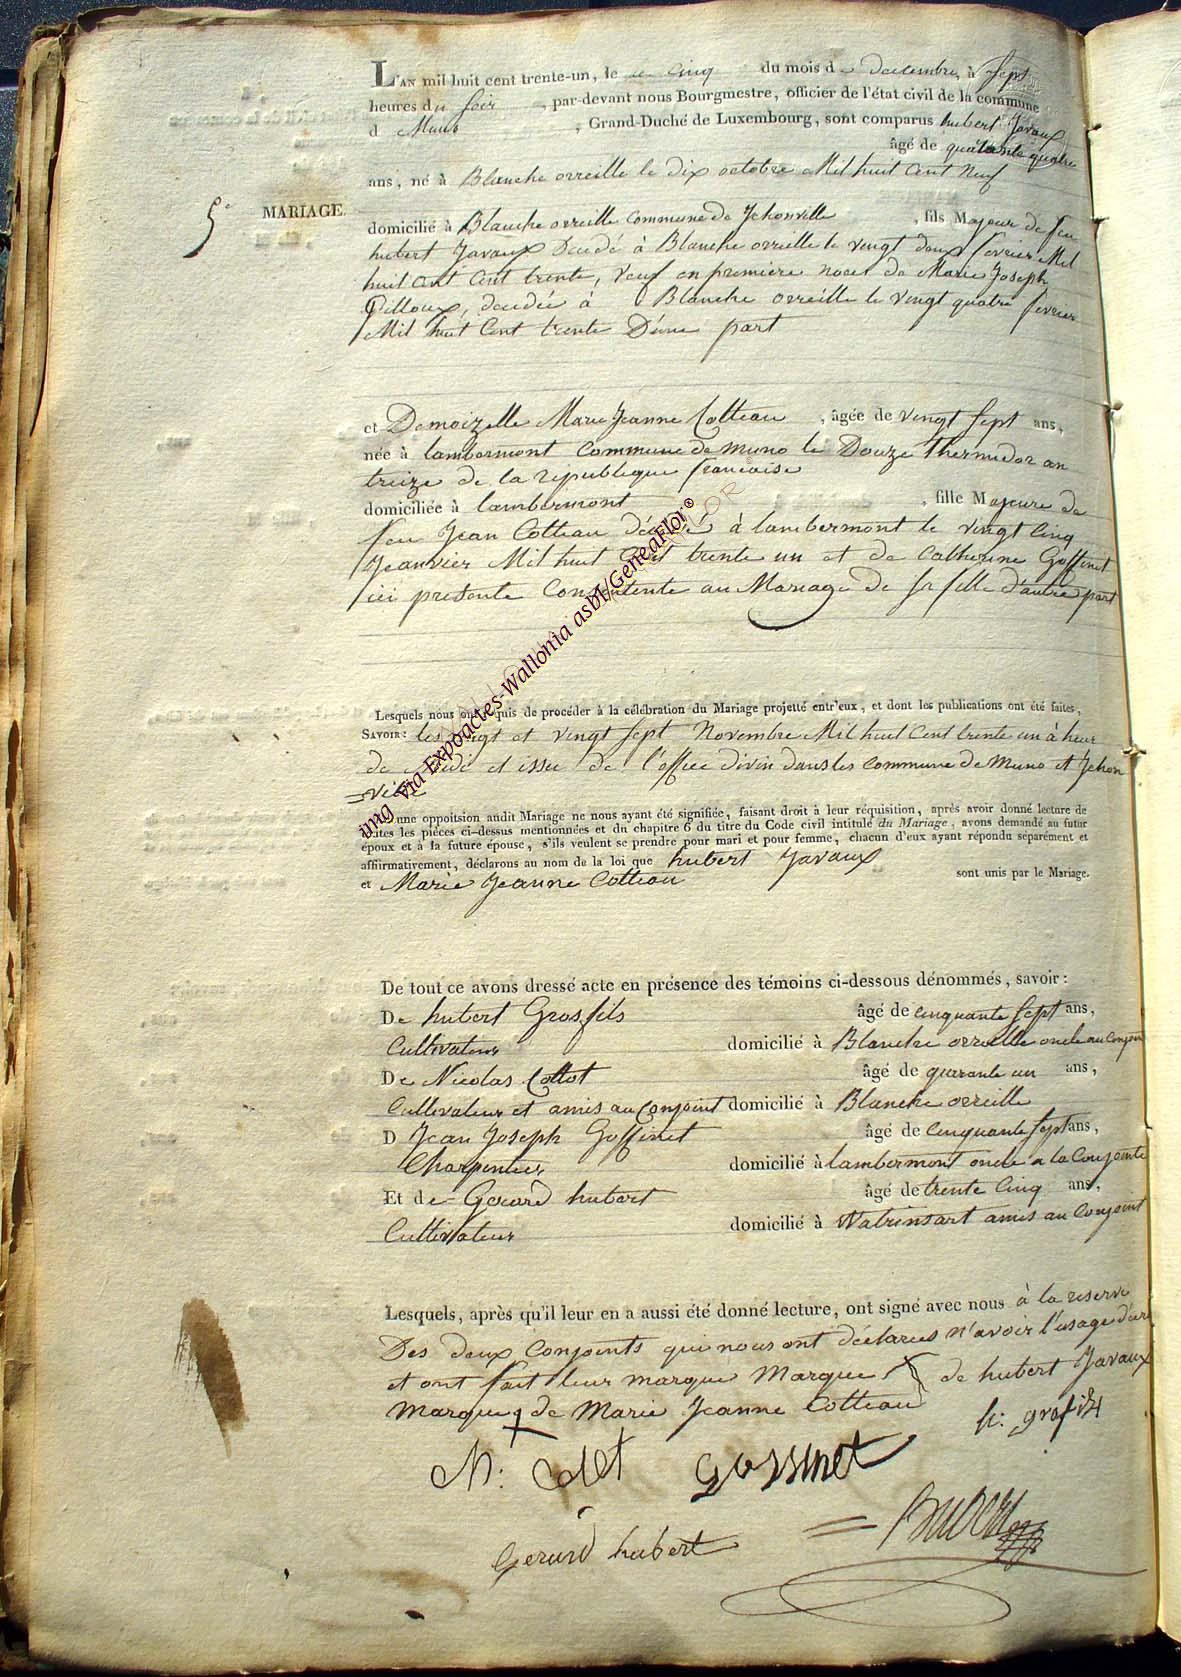 L'AN mil huit cent trente-un, le cinq du mois de decembre, à sept
heures du soir, par-devant nous Bourgmestre, officier de l'état civil de la commune
d Muno, Grand-Duché de Luxembourg, sont comparus hubert Javaux
âgé de quatre
ans, né à Blanche orreille le dix octobre Mil huit Cent Neuf
5e MARIAGE.
domicilié à Blanche orreille commune de Jehonville, fils Majeur de feu
hubert Javaux Decidé à Blanche orreille le vingt deux fevrier Mil
huit cent cent trente, veuf en premiere noces de Marie Joseph
decidée à Blanche orreille le vingt quatre fevrier
Mil huit Cent trente D'une part
et Demoizelle Marie Jeanne Cotteau, âgée de vingt sept ans,
née à lambermont Commune de muno le Douze thermidor an
treize de la republique francaise
domiciliée à lambermont, fille Majeure de
feu Jean Cotteau décédé à lambermont le vingt Cinq
Jeanvier Mil huit Cent trente un et de Catherine Goffinet
ici présente Consentente au Mariage de sa fille d'autre part
Lesquels nous ont requis de procéder à la célébration du Mariage projetté entr'eux, et dont les publications ont été faites,
SAVOIR: les vingt et vingt sept Novembre Mil huit Cent trente un à heur
de midi et issu de l'office divin dans les Commune de Muno et Jehon
=ville
Aucune oppoitsion audit Mariage ne nous ayant été signifiée, faisant droit à leur réquisition, après avoir donné lecture de
toutes les pièces ci-dessus mentionnées et du chapitre 6 du titre du Code civil intitulé du Mariage, avons demandé au futur
époux et à la future épouse, s'ils veulent se prendre pour mari et pour femme, chacun d'eux ayant répondu séparément et
affirmativement, déclarons au nom de la loi que hubert Javaux
et Marie Jeanne Cotteau sont unis par le Mariage.
De tout ce avons dressé acte en présence des témoins ci-dessous dénommés, savoir:
De hubert Grosfils âgé de cinquante sept ans,
Cultivateur domicilié à Blanche orreille oncle au conjoint
De Nicolas Collot âgé de quarante un ans,
Cultivateur et amis au Conjoint domicilié à Blanche orreille
D Jean Joseph Goffinet âgé de Cinquante sept ans,
Charpentier domicilié à lambermont oncle a la Conjointe
Et de Gerard hubert âgé de trente Cinq ans,
Cultivateur domicilié à Watrinsart amis au Conjoint
Lesquels, après qu'il leur en a aussi été donné lecture, ont signé avec nous à la reserve
Des deux Conjoints qui nous ont déclarés n'avoir l'usage d'ecr
et ont fait leur marque Marque de hubert Javaux
Marque de Marie Jeanne Cotteau
N: Collet Gossinet
Gerard hubert
img via Expoactes-Wallonia asbl/GeneaFlor®